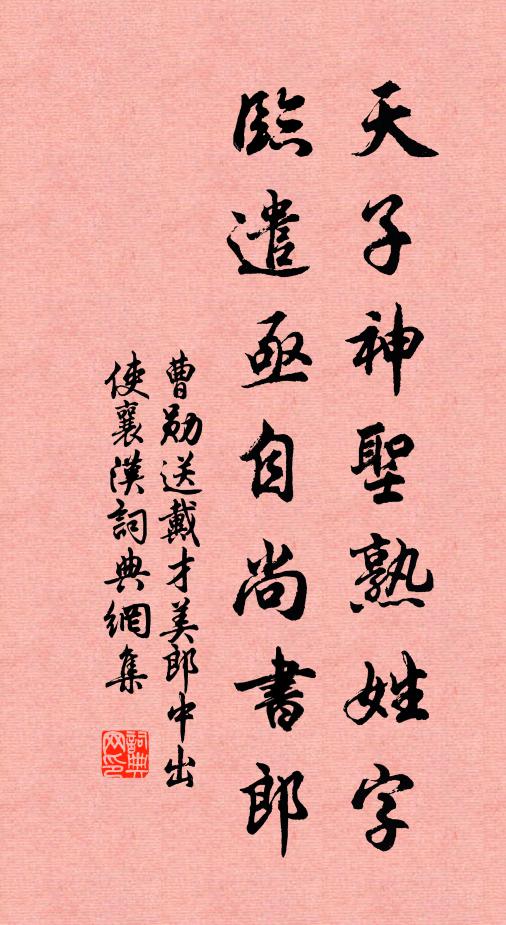 天子神聖熟姓字
臨遣亟自尚書郎
曹勛送戴才美郎中出
使襄漢詞典網集
詞典
网印